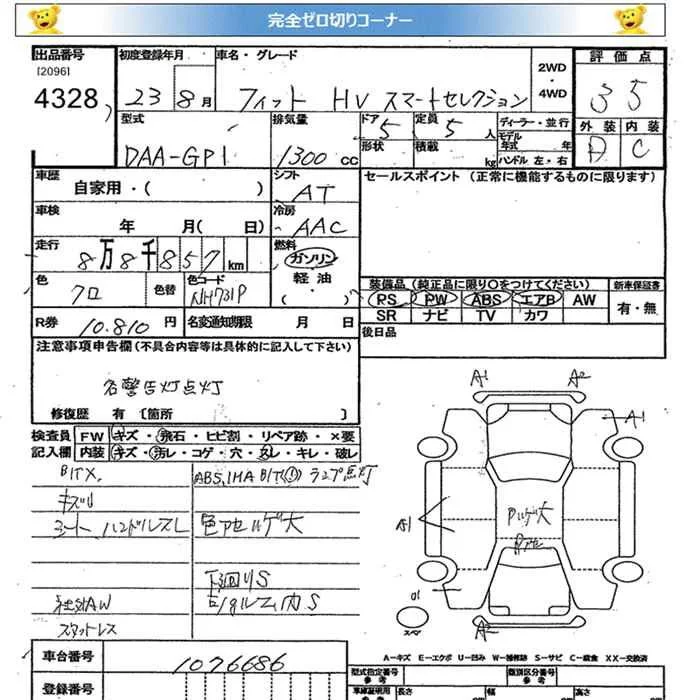 完全ゼロ切りコーナー
出品番号 初度登録年月 車名・グレード 2WD ・4WD 評価点
[2096]
4328 23 8月 フィット HV スマートセレクション 3 5
型式 排気量 ドア 5 定員 5人 ディーラー・並行 外装 内装
DAA-GP1 1300cc 形状 積載 kg モデル年式 年 ハンドル 左・右 D C
車歴 シフト セールスポイント (正常に機能するものに限ります)
自家用・( ) AT
車検 冷房
年 月( 日) AAC
走行 8万8千857km 燃料
ガソリン
色 クロ 色替 色コード NH731P 軽油・( )
装備品(純正品に限り〇をつけてください) 新車保証書
PS PW ABS エアB AW 有・無
SR ナビ TV カワ
R券 10,810円 名変通知期限 月 日 後日品
注意事項申告欄(不具合内容等は具体的に記入して下さい)
各警告灯点灯
修復歴 有 [箇所 ]
検査員 FW キズ・飛石・ヒビ割・リペア跡・×要
記入欄 内装 キズ・汚レ・コゲ・穴・スレ・キレ・破レ
BITX. ABS,IHA BIT(!) ランプ点灯
キズリ
シート、ハンドルスレ 色アセルゲ大
下回りS
社外AW Eルーム内S
スタットレス
A1 A2
A1
A1
ルーゲ大
色アセ
01
スペア
A2
A-キズ E-エクボ U-凹み W-補修跡 S-サビ C-腐食 XX-交換済
車台番号 1076686 型式指定番号 参考 類別区分番号 参考
登録番号 車線証明用 参考 長さ 幅 高さ